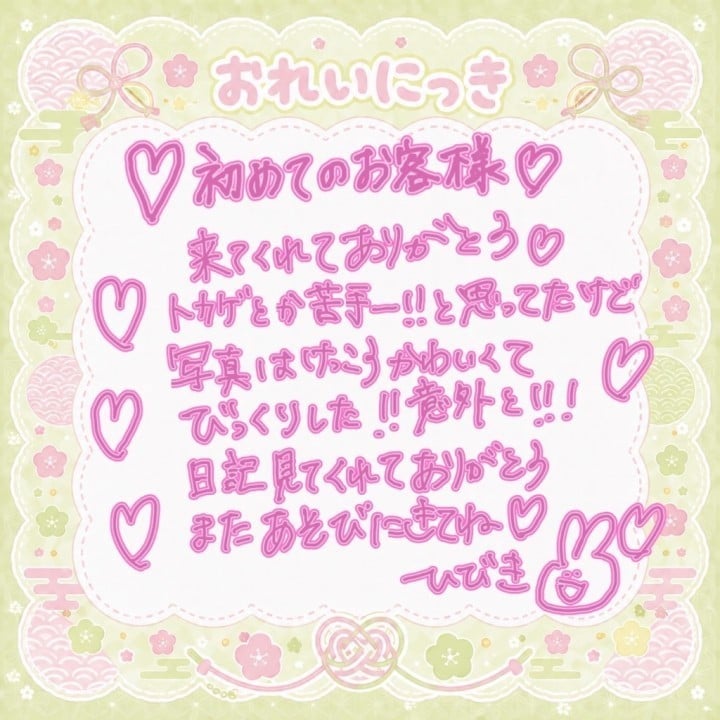 おれいにっき
♡初めてのお客様♡
来てくれてありがとう♡
トカゲとか苦手ー!!と思ってたけど
写真はけっこうかわいくて
びっくりした!!意外と!!!
日記見てくれてありがとう
またあそびにきてね♡
ーひびき